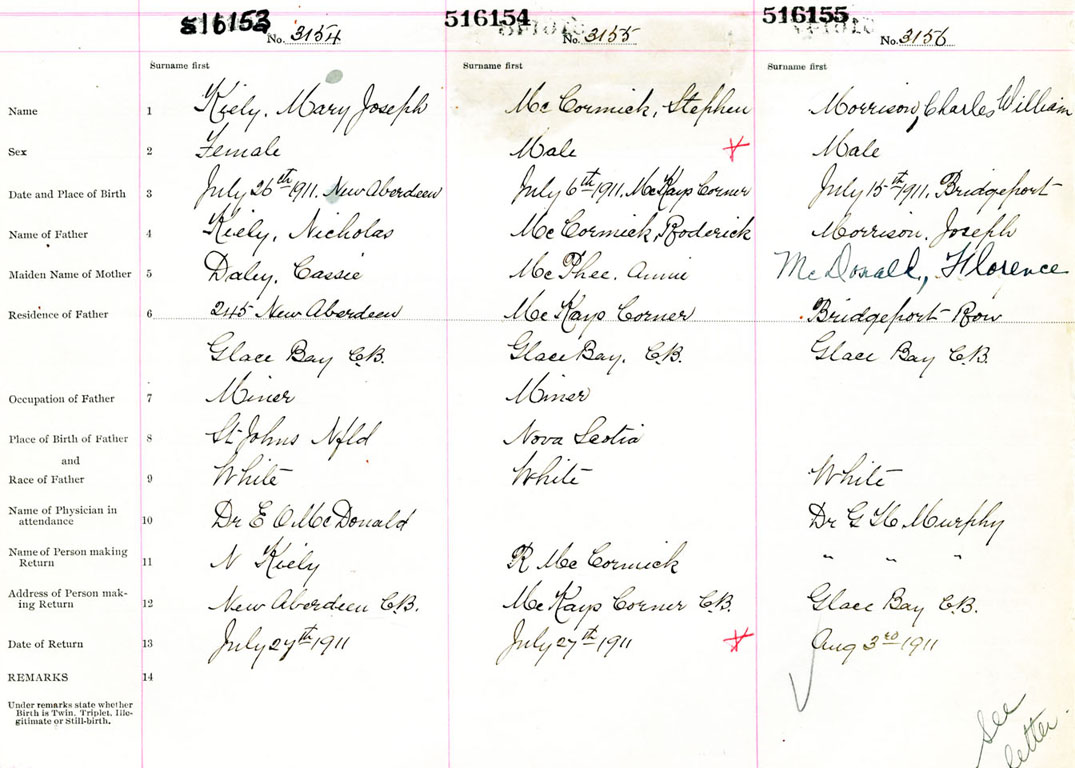 516153 516154 516155
No. 3154 No. 3155 No. 3156
Surname first Surname first Surname first
Name 1 Kiely, Mary Joseph Mc Cormick, Stephen Morrison, Charles William
Sex 2 Female Male Male
Date and Place of Birth 3 July 26th 1911. New Aberdeen July 6th 1911. McKays Corner July 15th 1911, Bridgeport
Name of Father 4 Kiely, Nicholas Mc Cormick, Roderick Morrison, Joseph
Maiden Name of Mother 5 Daley, Cassie Mc Phee, Annie McDonald, Florence
Residence of Father 6 245 New Aberdeen Mc Kays Corner Bridgeport Row
Glace Bay C.B. Glace Bay, C.B. Glace Bay C.B.
Occupation of Father 7 Miner Miner
Place of Birth of Father 8 St Johns Nfld Nova Scotia
and
Race of Father 9 White White White
Name of Physician in
attendance 10 Dr E O McDonald Dr G H Murphy
Name of Person making
Return 11 N Kiely R Mc Cormick " " "
Address of Person mak-
ing Return 12 New Aberdeen C.B. Mc Kays Corner C.B. Glace Bay C.B.
Date of Return 13 July 27th 1911 July 27th 1911 Aug 3rd 1911
REMARKS 14
Under remarks state whether
Birth is Twin, Triplet, Ille-
gitimate or Still-birth.
See
letter